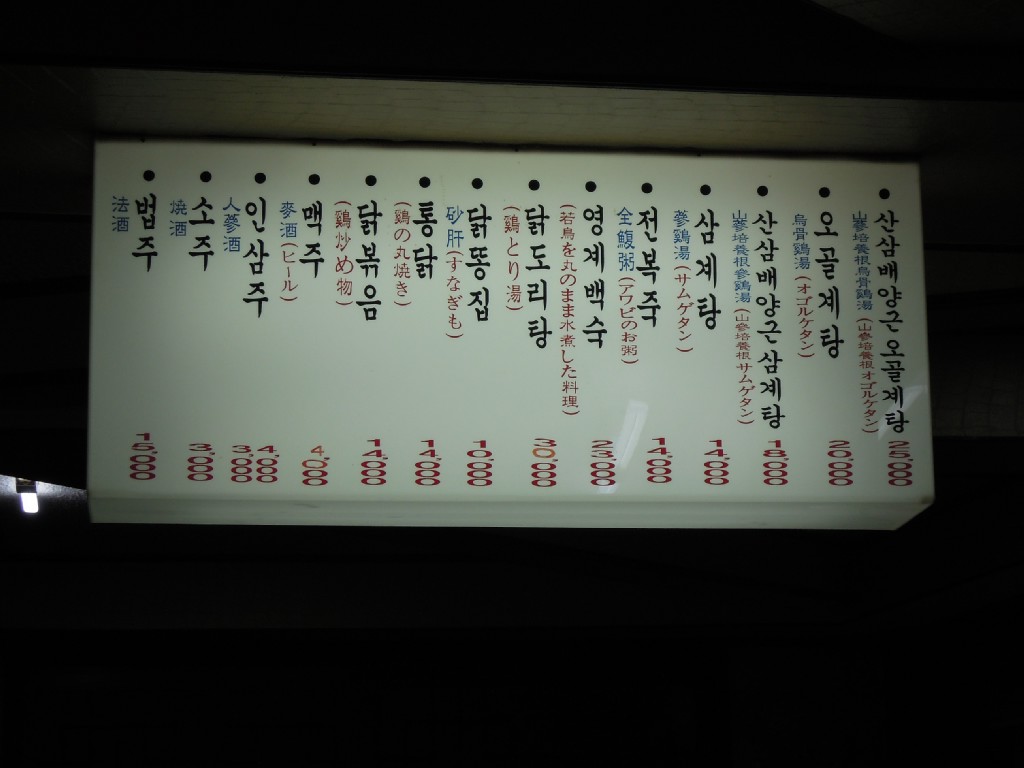 산삼배양근오골계탕
山蔘培養根烏骨鷄湯(山參培養根オゴルケタン)
25,000
오골계탕
烏骨鷄湯(オゴルケタン)
20,000
산삼배양근삼계탕
山蔘培養根參鷄湯(山參培養根サムゲタン)
18,000
삼계탕
蔘鷄湯(サムゲタン)
14,000
전복죽
全鰒粥(アワビのお粥)
14,000
영계백숙
(若鳥を丸のまま水煮した料理)
23,000
닭도리탕
(鷄とり湯)
30,000
닭똥집
砂肝(すなぎも)
10,000
통닭
(鷄の丸焼き)
14,000
닭볶음
(鷄炒め物)
14,000
맥주
麥酒(ビール)
4,000
인삼주
人蔘酒
4,000
3,000
소주
燒酒
3,000
법주
法酒
15,000